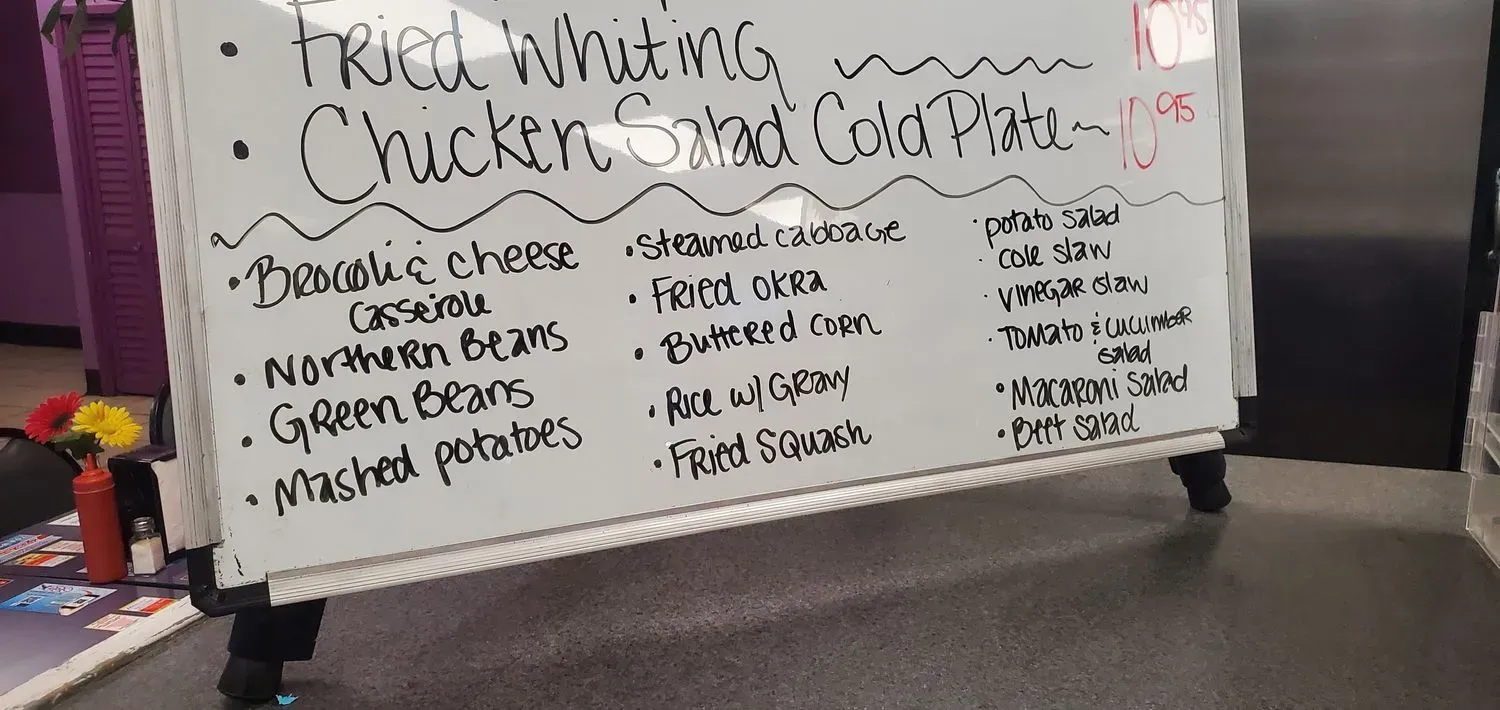 • Fried Whiting 10.95
• Chicken Salad Cold Plate 10.95
• Broccoli & cheese
casserole
• Northern Beans
• Green Beans
• Mashed potatoes
• Steamed cabbage
• Fried okra
• Buttered corn
• Rice w/ Gravy
• Fried Squash
• potato salad
• cole slaw
• vinegar slaw
• Tomato & cucumber
salad
• Macaroni Salad
• Beet salad